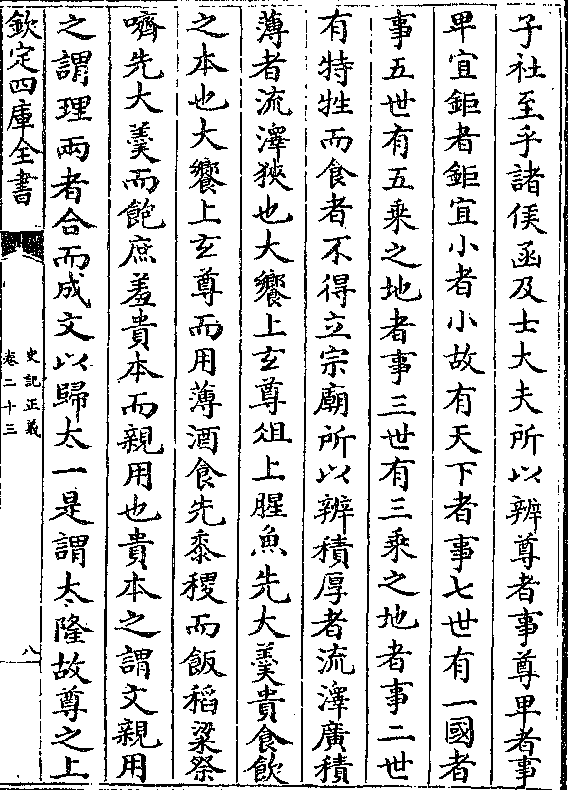 子社至乎諸侯函及士大夫所以辨尊者事尊卑者事
卑宜鉅者鉅宜小者小故有天下者事七世有一國者
事五世有五乘之地者事三世有三乘之地者事二世
有特牲而食者不得立宗廟所以辨積厚者流澤廣積
薄者流澤狹也大饗上玄尊俎上腥魚先大羹貴食飲
之本也大饗上玄尊而用薄酒食先黍稷而飯稻粱祭
嚌先大羹而飽庶羞貴本而親用也貴本之謂文親用
之謂理兩者合而成文以歸太一是謂太隆故尊之上
欽定四庫全書
史記正義
卷二十三
八